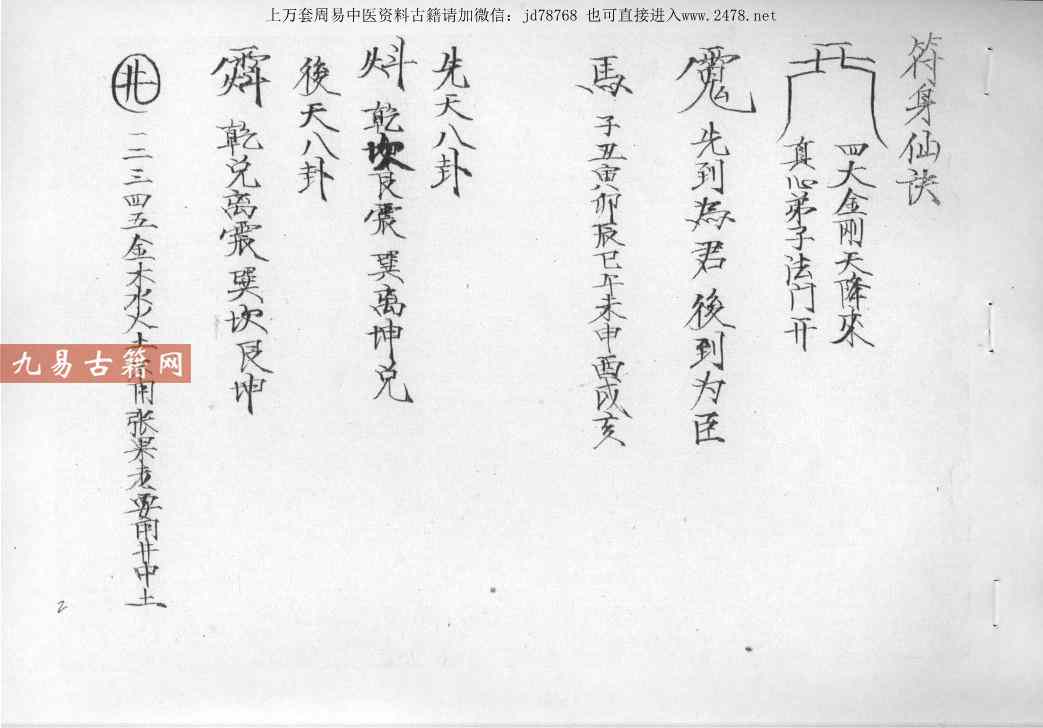 上万套周易中医资料古籍请加微信：jd78768 也可直接进入www.2478.net
符身仙诀
四大金刚天降來
真心弟子法门开
先到為君後到为臣
馬 子丑寅卯辰巳午未申酉戌亥
先天八卦
乾坎艮震巽离坤兑
後天八卦
乾兑离震巽坎艮坤
井 一二三四五金木水火土 用张果老要用井中土
九易古籍网
2